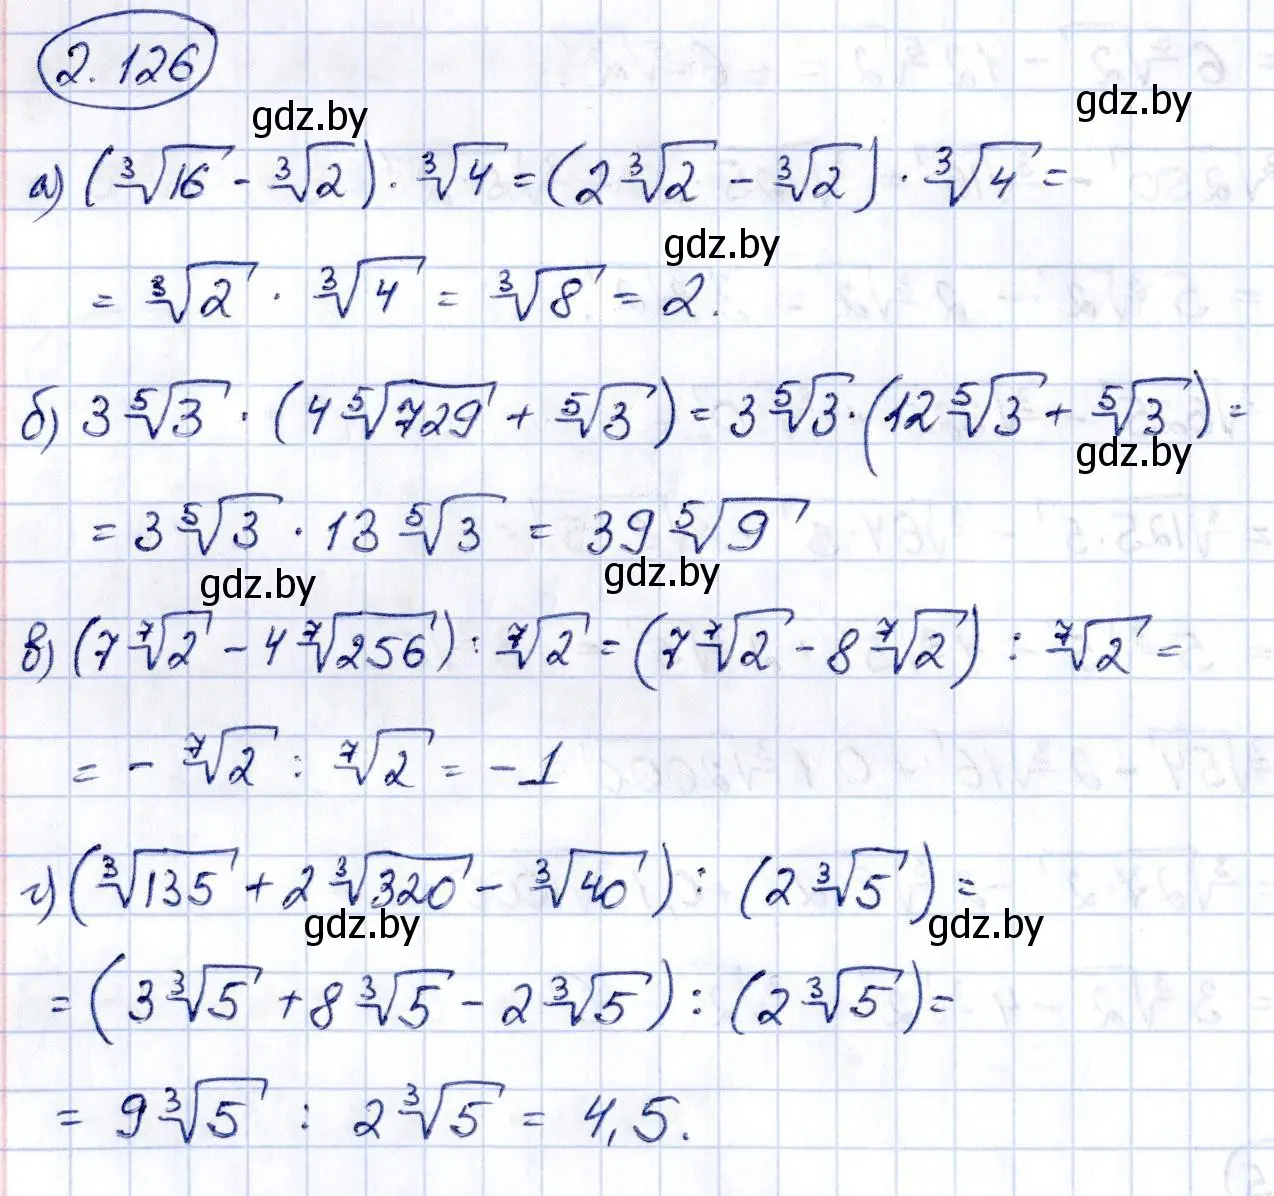 2.126
gdz.by
gdz.by
а) (∛16 - ∛2) · ∛4 = (2∛2 - ∛2) · ∛4 =
gdz.by
= ∛2 · ∛4 = ∛8 = 2.
б) 3⁵√3 · (4⁵√729 + ⁵√3) = 3⁵√3 · (12⁵√3 + ⁵√3) =
gdz.by
= 3⁵√3 · 13⁵√3 = 39⁵√9
gdz.by
gdz.by
в) (7⁷√2 - 4⁷√256) : ⁷√2 = (7⁷√2 - 8⁷√2) : ⁷√2 =
= - ⁷√2 : ⁷√2 = -1
г) (∛135 + 2∛320 - ∛40) : (2∛5) =
gdz.by
gdz.by
= (3∛5 + 8∛5 - 2∛5) : (2∛5) =
= 9∛5 : 2∛5 = 4,5.